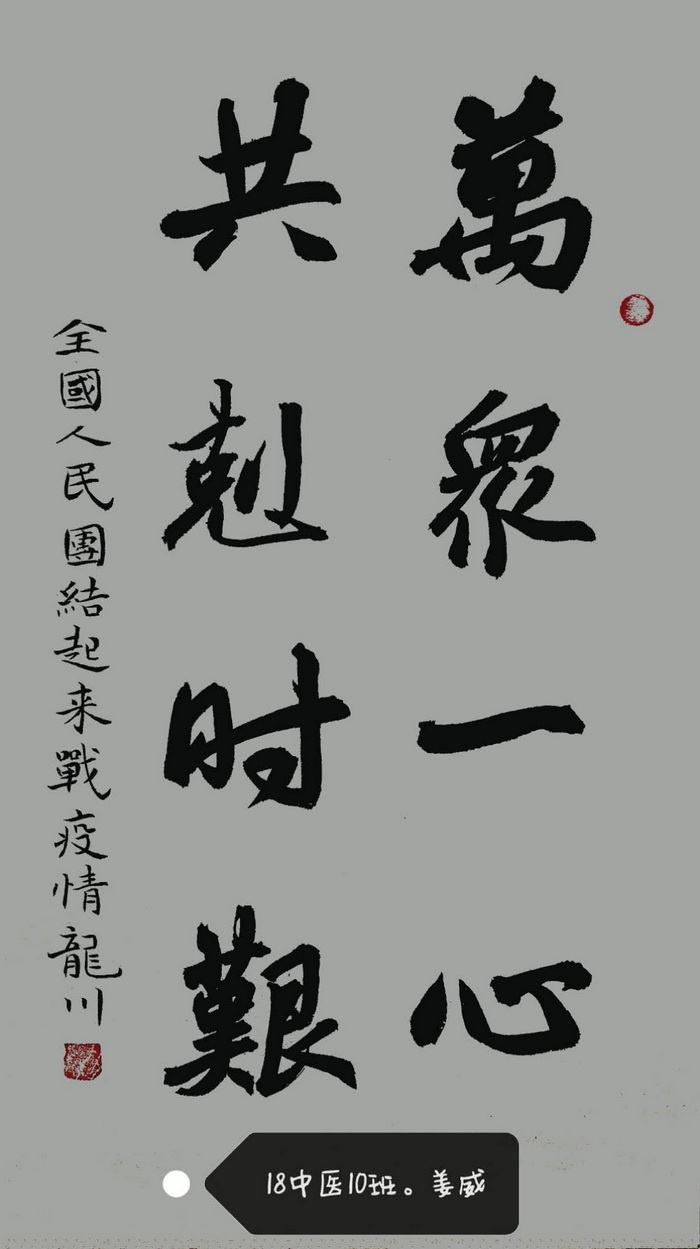 萬眾一心
共剋时艱
全國人民團結起来戰疫情龍川
18中医10班。姜威